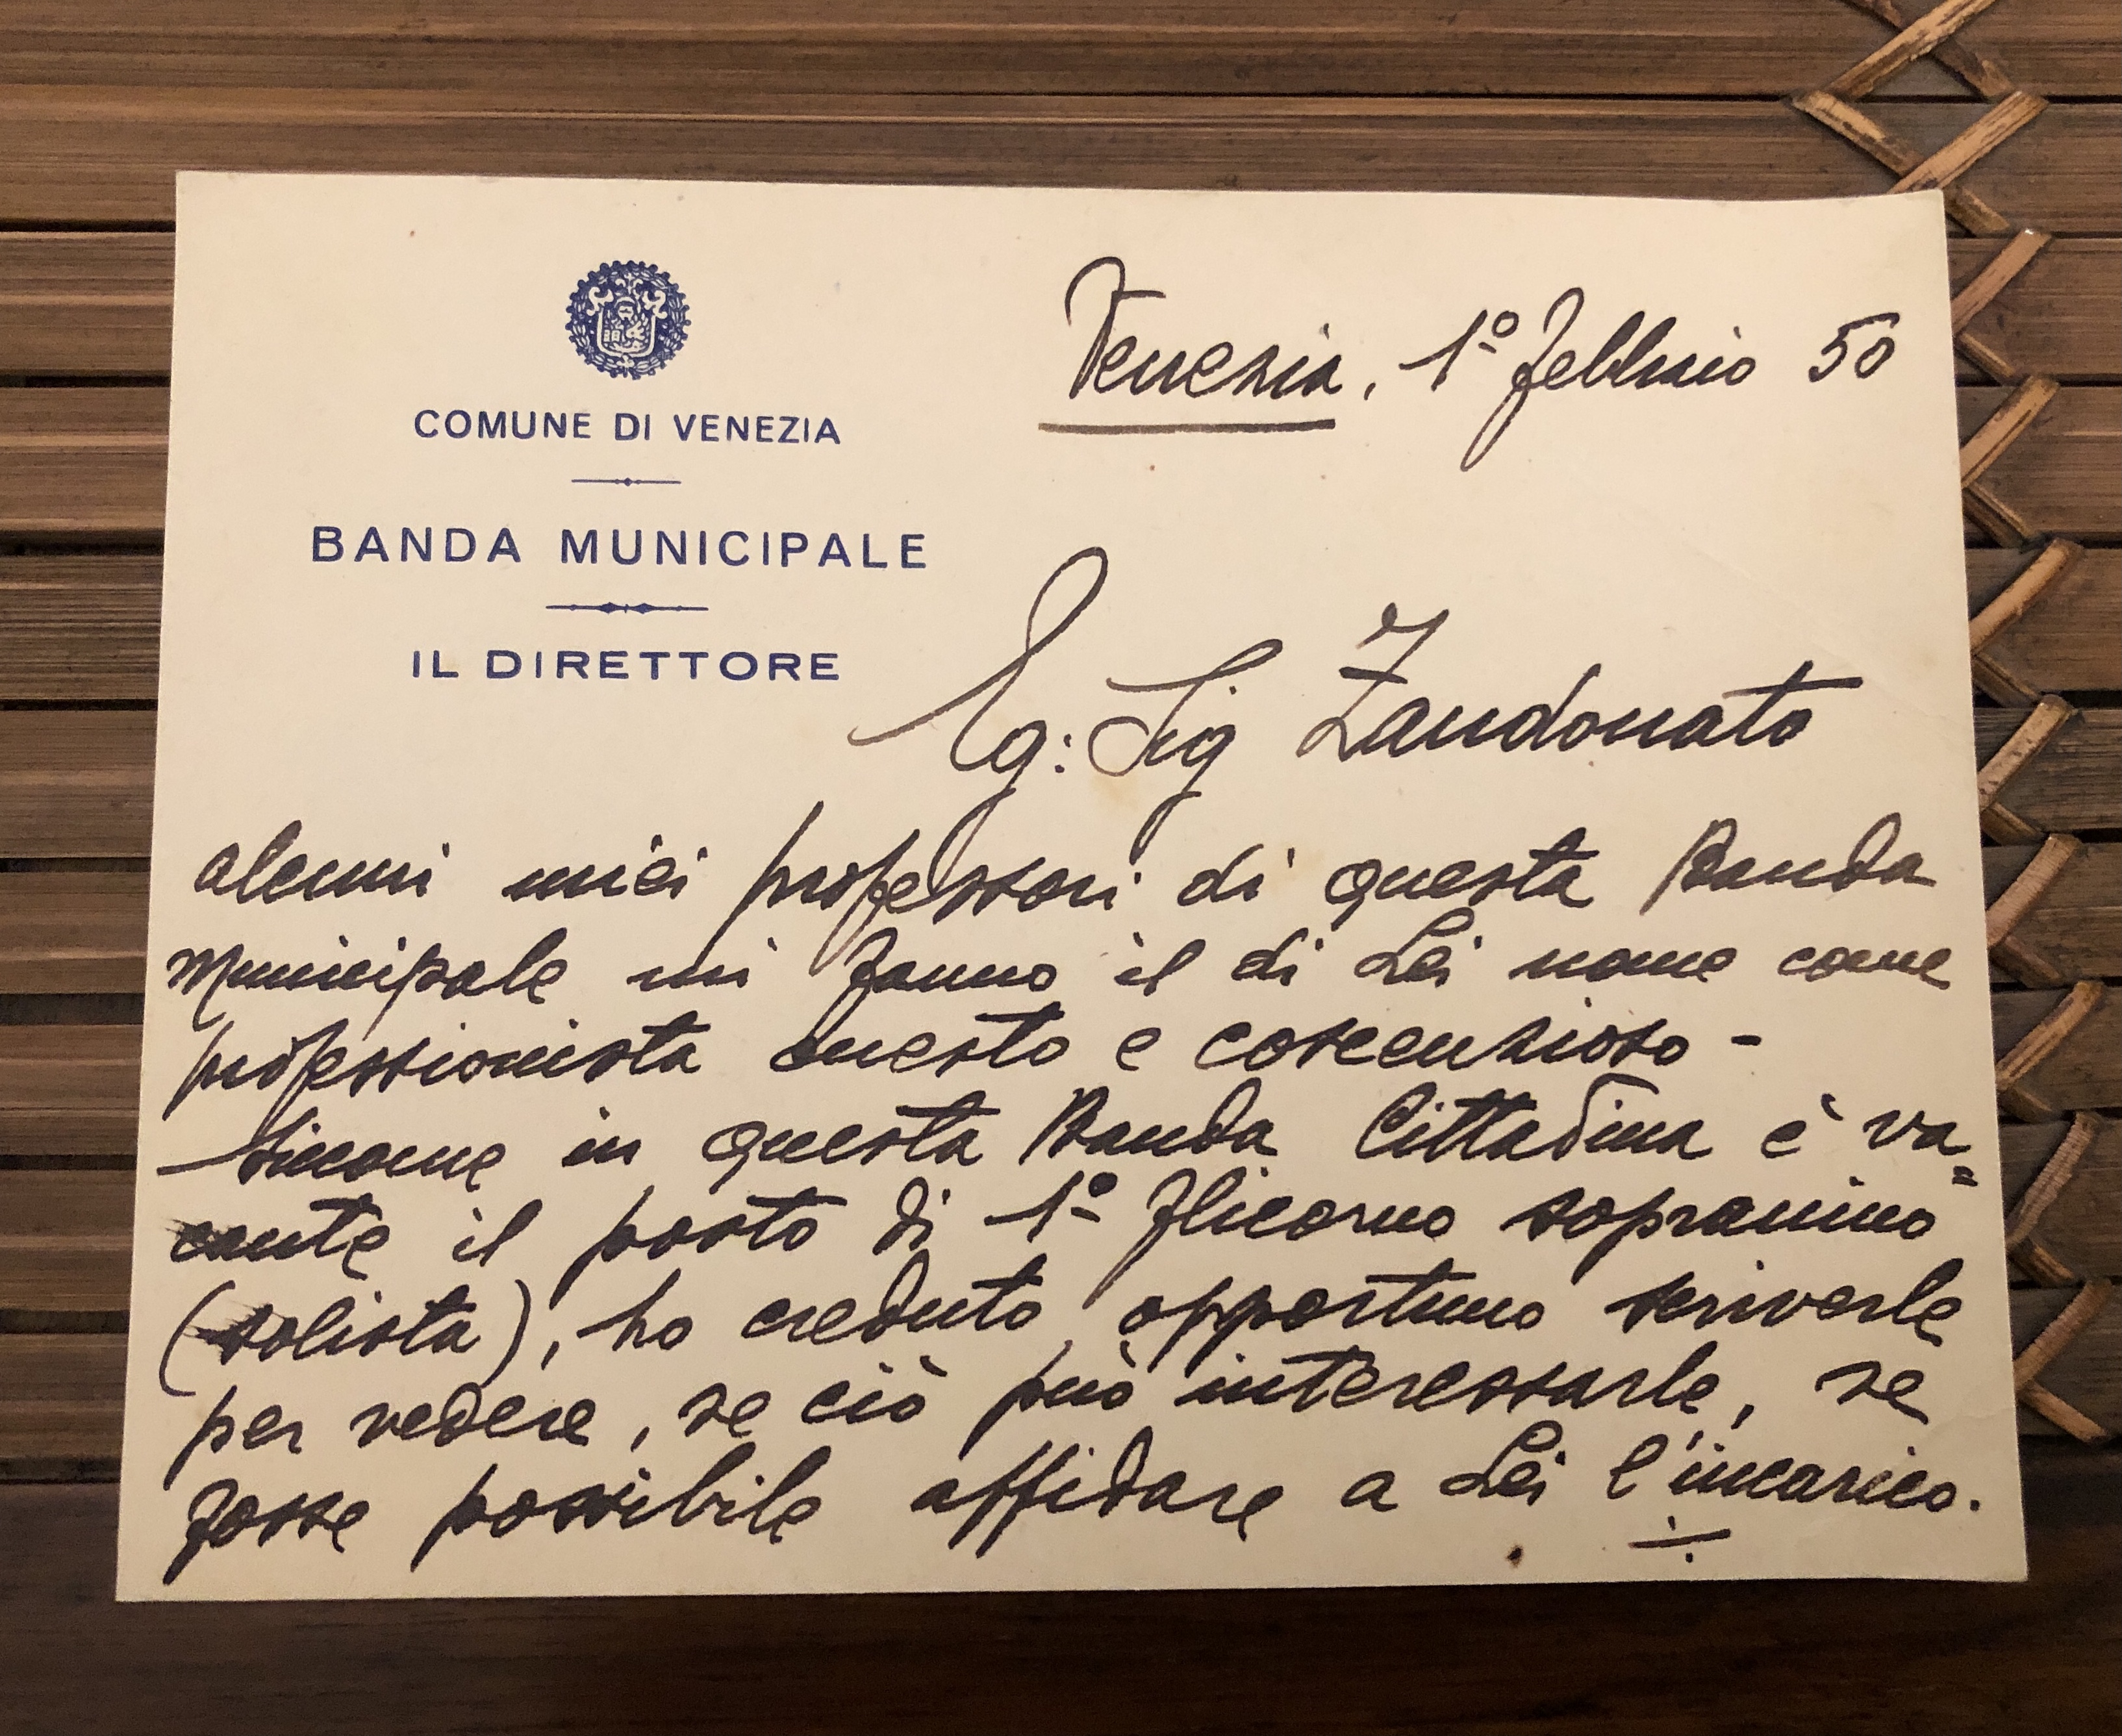 COMUNE DI VENEZIA
BANDA MUNICIPALE
IL DIRETTORE
Venezia, 1º febbraio 50
Eg: Sig Zandonato
alcuni miei professori di questa Banda
Municipale mi fanno il di Lei nome come
professionista onesto e coscenzioso -
Siccome in questa Banda Cittadina è va=
cante il posto di 1º flicorno sopranino
(solista), ho creduto opportuno scriverle
per vedere, se ciò può interessarle, se
fosse possibile affidare a Lei l'incarico.